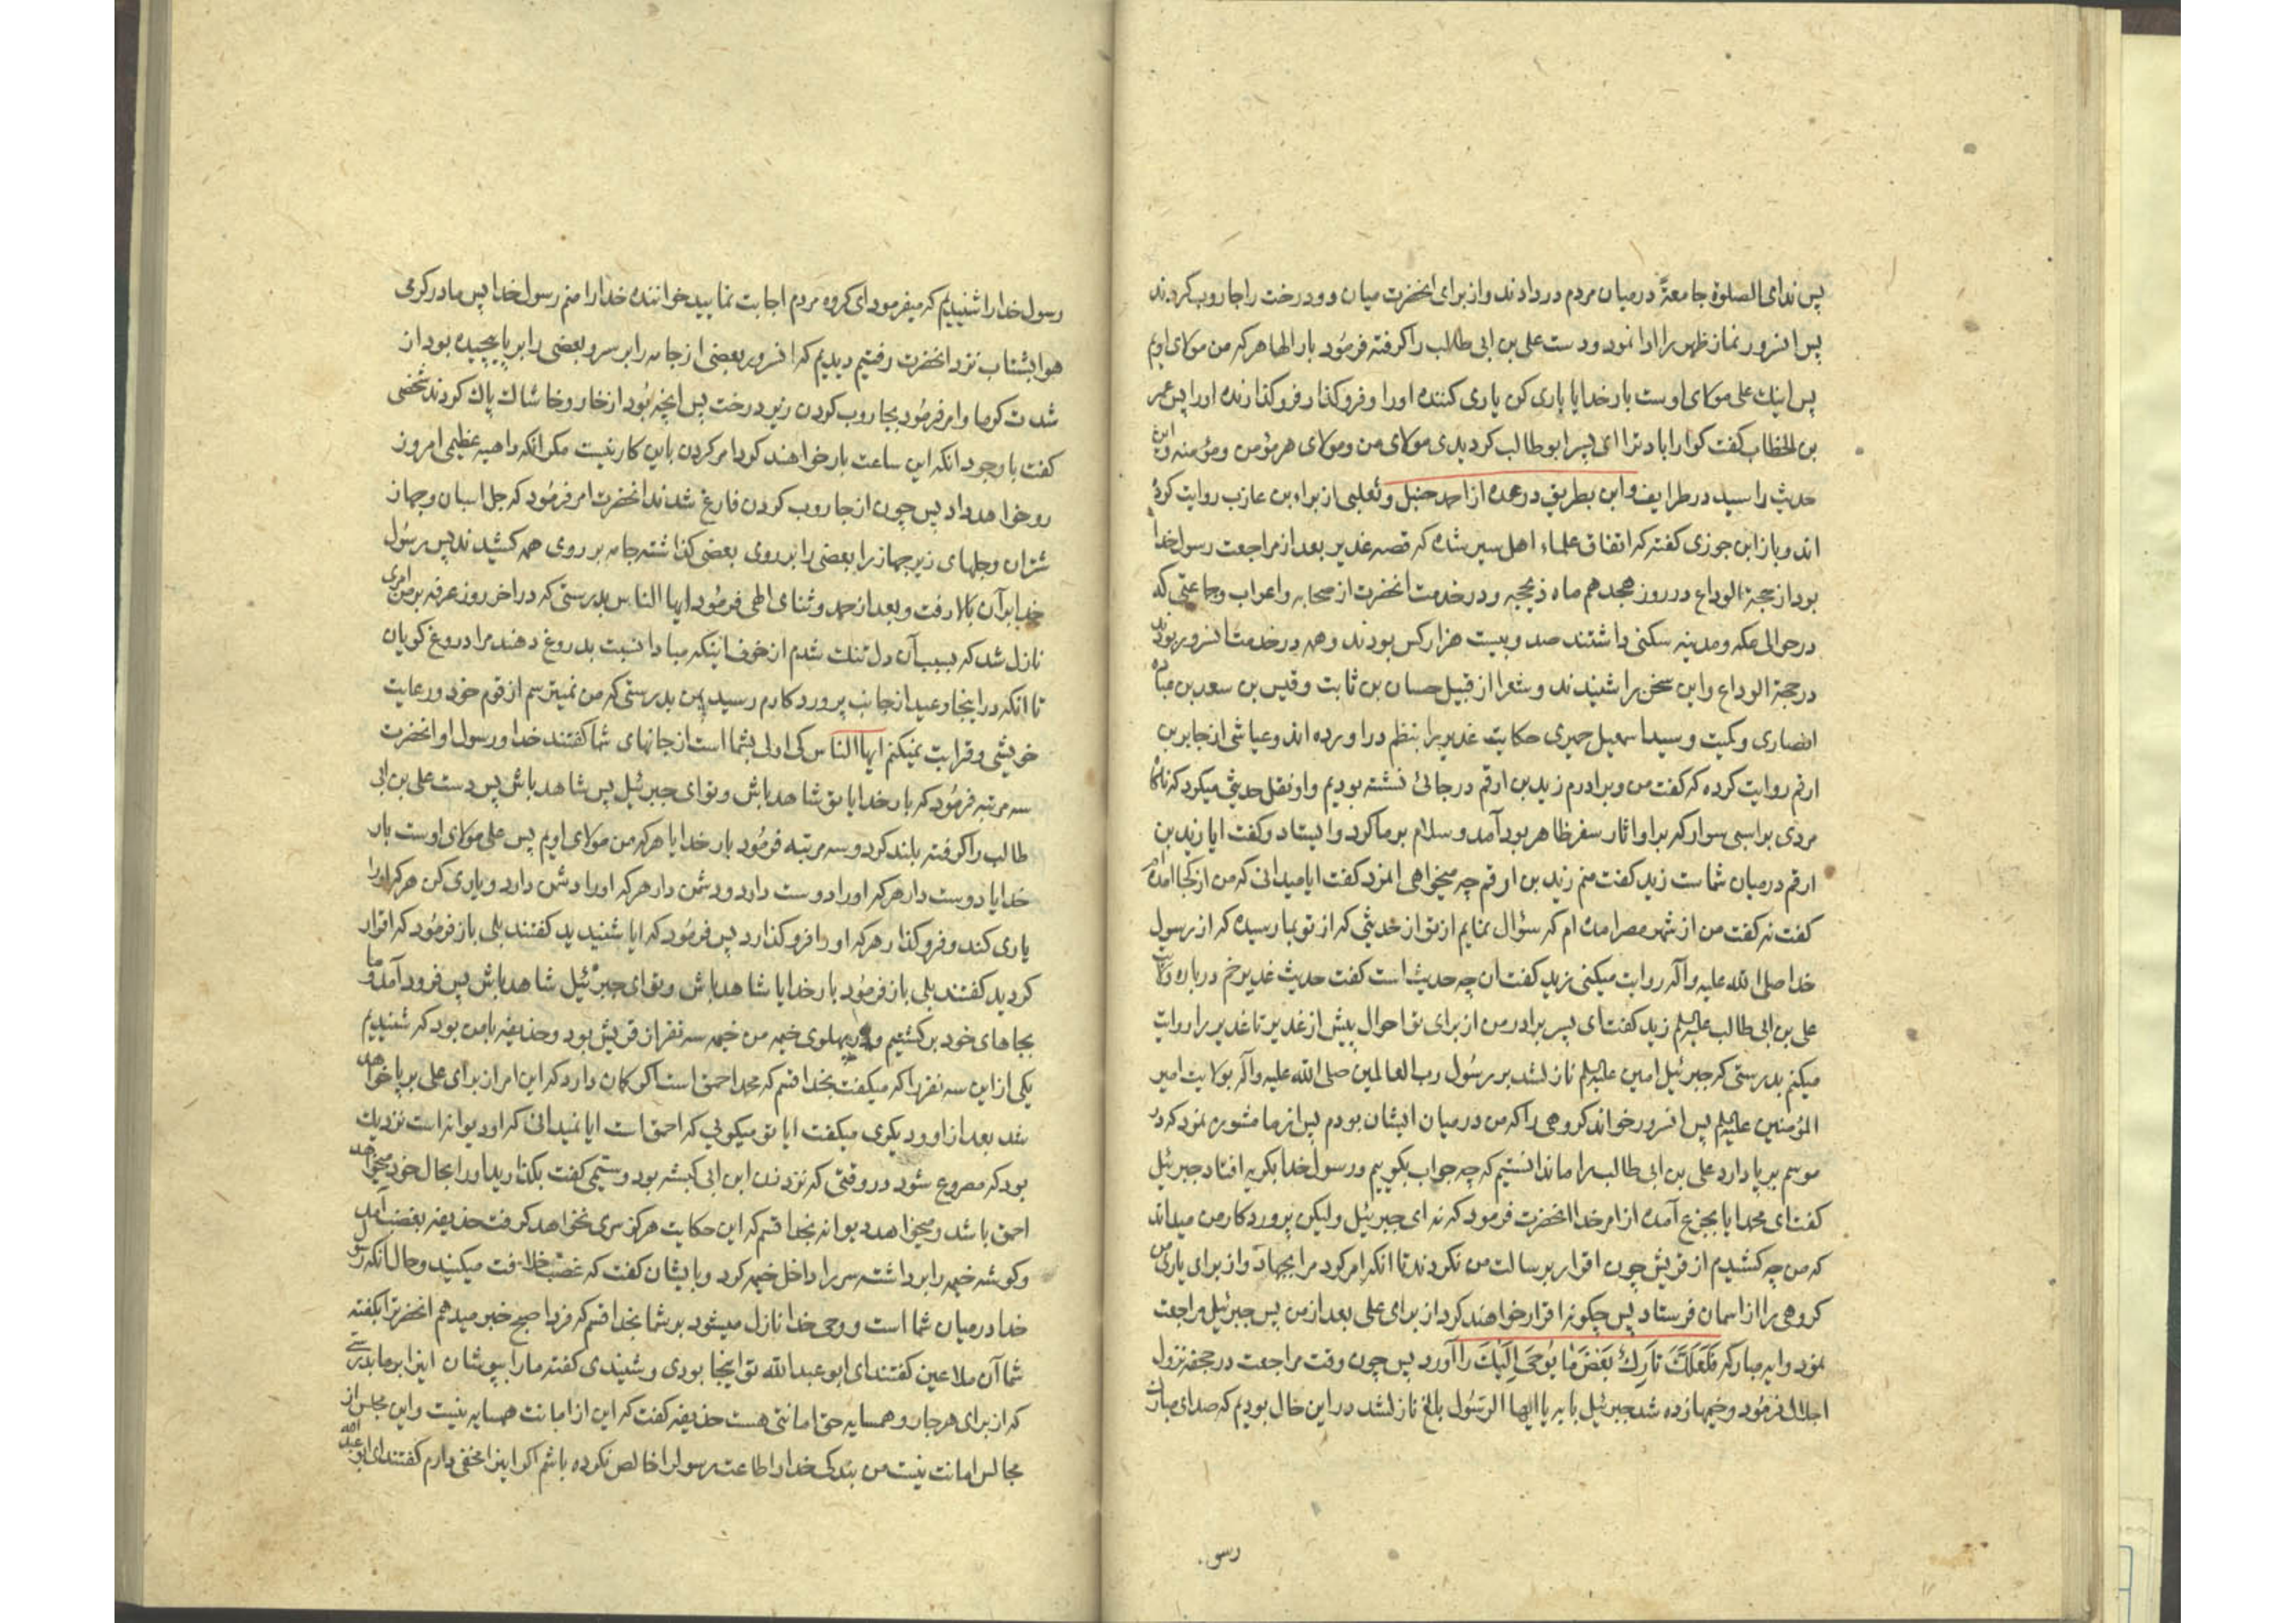 پس ندای الصلوة جامعةً درمیان مردم در دادند و از برای انحضرت میان دو درخت را جاروب کردند
پس انسرور نماز ظهر را ادا نمود و دست علی بن ابی طالب را کرفته فرمُود بار الها هر که من مولای اویم
پس اینك علی مولای اوست بار خدایا یاری کن یاری کننده اورا و فرو کذار فرو کذارنده اورا پس عمر
بن الخطاب کفت کوارا باد ترا ای پسر ابو طالب کردیدی مولای من و مولای هر مؤمن و مؤمنه و این
حدیث را سید در طرایف و ابن بطریق در عمده از احمد حنبل و ثعلبی از براء بن عازب روایت کرده
اند و باز ابن جوزی کفته که اتفاق علماء اهل سیر شده که قصه غدیر بعد از مراجعت رسول خدا
بود از حجة الوداع در روز هجدهم ماه ذیحجه و در خدمت انحضرت از صحابه و اعراب و جماعتی که
در حوالی مکه و مدینه سکنی داشتند صد و بیست هزار کس بودند و همه در خدمت انسرور بودند
در حجة الوداع و این سخن را شنیدند و شعرا از قبیل حسان بن ثابت و قیس بن سعد بن عباده
انصاری و کمیت و سید اسمعیل حمیری حکایت غدیر را بنظم در اورده اند و عیاشی از جابر بن
ارقم روایت کرده که کفت من و برادرم زید بن ارقم در جائی نشسته بودیم و او نقل حدیثی میکرد که ناکاه
مردی بر اسبی سوار که بر او اثار سفر ظاهر بود آمد و سلام بر ما کرد و ایستاد و کفت ایا زید بن
ارقم درمیان شماست زید کفت منم زید بن ارقم چه میخواهی انمرد کفت ایا میدانی که من از کجا امده ام
کفت نه کفت من از شهر مصر امده ام که سؤال نمایم از تو از حدیثی که از تو بما رسیده که از رسول
خدا صلی الله علیه و آله روایت میکنی زید کفت ان چه حدیث است کفت حدیث غدیر خم درباره ولایت
علی بن ابی طالب علیه السلم زید کفت ای پسر برادر من از برای تو احوال پیش از غدیر تا غدیر را روایت
میکنم بدرستی که جبرئیل امین علیه السلم نازل شد بر رسُول رب العالمین صلی الله علیه و آله بولایت امیر
المؤمنین علیه السلم پس انسرور خواند کروهی را که من درمیان ایشان بودم پس از ما مشوره نمود که در
موسم بر پا دارد علی بن ابی طالب را ما ندانستیم که چه جواب بکوییم و رسول خدا بکریه افتاد جبرئیل
کفت ای محمد ایا بجزع آمده از امر خدا انحضرت فرمود که نه ای جبرئیل ولیکن پروردکار من میداند
که من چه کشیدم از قریش چون اقرار برسالت من نکردند تا انکه امر کرد مرا بجهاد و از برای یاری من
کروهی را از اسمان فرستاد پس چکونه اقرار خواهند کرد از برای علی بعد از من پس جبرئیل مراجعت
نمود و ایه مبارکه فَلَعَلَّكَ تٰارِكٌ بَعْضَ مٰا یُوحَی اِلَیْكَ را آورد پس چون وقت مراجعت در جحفه نزول
اجلال فرمُود و خیمها زده شد جبرئیل بایه یا ایها الرسُول بلّغ نازل شد در این حال بودیم که صدای مبارك
رسو
رسول خدا را شنیدیم که میفرمود ای کروه مردم اجابت نمایید خواننده خدا را منم رسول خدا پس ما در کرمی
هوا بشتاب نزد انحضرت رفتیم دیدیم که انسرور بعضی از جامه را بر سر و بعضی را بر پا پیچیده بود از
شدت کرما و امر فرمُود بجاروب کردن زیر درخت پس انچه بُود از خار و خاشاك پاك کردند شخصی
کفت با وجود انکه این ساعت بار خواهند کرد امر کردن باین کار نیست مکر انکه داهیه عظیمی امروز
رو خواهد داد پس چون از جاروب کردن فارغ شدند انحضرت امر فرمُود که جل اسبان و جهاز
شتران و جلهای زیر جهاز را بعضی را بر روی بعضی کذاشته جامه بر روی همه کشیدند پس رسُول
خدا بر آن بالا رفت و بعد از حمد و ثنای الهی فرمُود ایها الناس بدرستی که در اخر روز عرفه بر من امری
نازل شد که بسبب آن دل تنك شدم از خوف اینکه مبادا نسبت بدروغ دهند مرا دروغ کویان
تا انکه در اینجا وعید از جانب پروردکارم رسید پس بدرستی که من نمیترسم از قوم خود و رعایت
خویشی و قرابت نمیکنم ایها الناس کی اولی بشما است از جانهای شما کفتند خدا و رسول او انحضرت
سه مرتبه فرمُود که بار خدایا تو شاهد باش و تو ای جبرئیل پس شاهد باش پس دست علی بن ابی
طالب را کرفته بلند کرد و سه مرتبه فرمُود بار خدایا هر که من مولای اویم پس علی مولای اوست بار
خدایا دوست دار هر که اورا دوست دارد و دشمن دار هر که اورا دشمن دارد و یاری کن هر که اورا
یاری کند و فرو کذار هر که اورا فرو کذارد پس فرمُود که ایا شنیدید کفتند بلی باز فرمُود که اقرار
کردید کفتند بلی باز فرمُود بار خدایا شاهد باش و تو ای جبرئیل شاهد باش پس فرود آمد و ما
بجاهای خود بر کشتیم و در پهلوی خیمه من خیمه سه نفر از قریش بود و حذیفه با من بود که شنیدیم
یکی از این سه نفر را که میکفت بخدا قسم که محمد احمق است اکر کمان دارد که این امر از برای علی بر پا خواهد
شد بعد از او دیکری میکفت ایا تو میکویی که احمق است ایا نمیدانی که او دیوانه است نزدیك
بود که مصروع شود در وقتی که نزد زن ابن ابی کبشه بود و سیّمی کفت بکذارید اورا بحال خود میخواهد
احمق باشد و میخواهد دیوانه بخدا قسم که این حکایت هرکز سری نخواهد کرفت حذیفه بغضب آمد
و کوشه خیمه را برداشته سر را داخل خیمه کرد و بایشان کفت که غصب خلافت میکنید و حال انکه رسول
خدا درمیان شما است و وحی خدا نازل میشود بر شما بخدا قسم که فردا صبح خبر میدهم انحضرترا بکفته
شما آن ملاعین کفتند ای ابو عبد الله تو اینجا بودی و شنیدی کفته ما را بپوشان اینرا بر ما بدرستی
که از برای هر جار و همسایه حق امانتی هست حذیفه کفت که این از امانت همسایه نیست و این مجلس از
مجالس امانت نیست من بندکی خدا و اطاعت رسول را خالص نکرده باشم اکر اینرا مخفی دارم کفتند ای ابو عبد الله